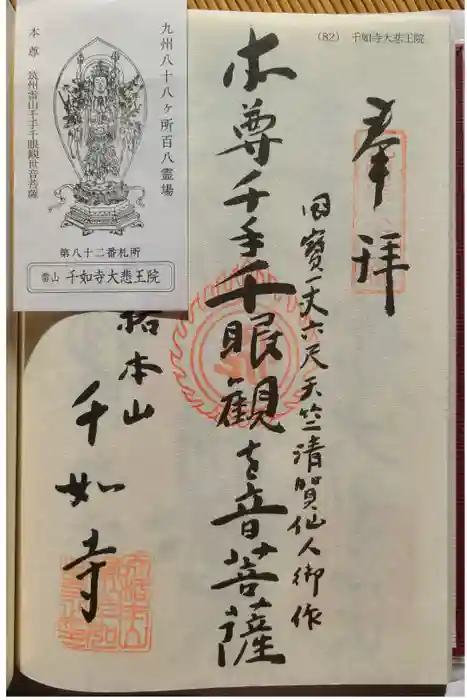 (82) 千如寺大悲王院
奉拝
国寳一丈六尺天竺清賀仙人御作
本尊千手千眼観世音菩薩
千如寺
九州八十八ヶ所百八霊場
本尊 筑州雷山千手千眼観世音菩薩
第八十二番札所
雷山 千如寺大悲王院